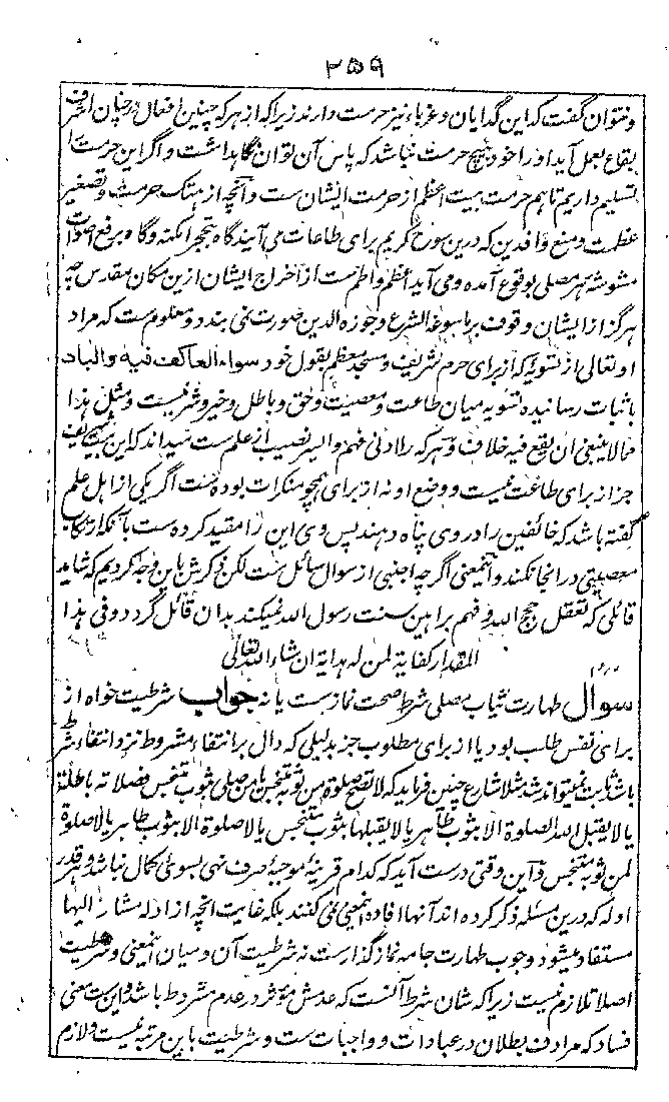 ۲۵۹
ونتوان گفت که این گدایان و غرباء نیز حرمت دارند زیراکه از هر که چنین افعال درچنان اشرف
بقاع بعمل آید او را خود هیچ حرمت نباشد که پاس آن توان نگاهداشت و اگر این حرمت را
تسلیم داریم تاهم حرمت بیت اعظم از حرمت ایشان ست و آنچه از هتک حرمت و تصغیر
عظمت و منع وافدین که درین سوح کریم برای طاعات می آیند گاه بتحجر امکنه و گاه برفع اصوات
مشوشه هر مصلی بوقوع آمده و می آید اعظم و اطم ست از اخراج ایشان ازین مکان مقدس چه
هرگز از ایشان وقوف بر ما سوغه الشرع وجوزه الدین صورت نمی بندد و معلوم ست که مراد
او تعالی از تسویه که از برای حرم شریف و مسجد معظم بقول خود سواء العاکف فیه والباد
باثبات رسانیده تسویه میان طاعت و معصیت و حق و باطل و خیر و شر نیست و مثل هذا
مما لا ینبغی ان یقع فیه خلاف و هر که را ادنی فهم و ایسر نصیب از علم ست میداند که این بیت شریف
جز از برای طاعت نیست و وضع او نه از برای همچو منکرات بوده ست اگر یکی از اهل علم
گفته باشد که خائفین را در وی پناه دهند پس وی این را مقید کرده ست بآنکه ارتکاب
معصیتی در انجا نکند و اینمعنی اگرچه اجنبی از سوال سائل ست لکن ذکرش باین وجه کردیم که شاید
قائلی که تعقل حجج الله و فهم براهین سنت رسول الله نمیکند بدان قائل گردد و فی هذا
المقدار کفایة لمن له هدایة ان شاء الله تعالی
سوال طهارت ثیاب مصلی شرط صحت نماز ست یا نه جواب شرطیت خواه از
برای نفس طلب بود یا از برای مطلوب جز بدلیلی که دال بر انتفاء مشروط نزد انتفاء شرط
باشد ثابت نمیتواند شد مثلا شارع چنین فرماید که لا تصح صلوة من ثوبه متنجس یا من صلی بثوب متنجس فصلاته باطلة
یا لا یقبل الله الصلوة الا بثوب طاهر یا لا یقبلها بثوب متنجس یا لا صلوة الا بثوب طاهر یا لا صلوة
لمن ثوبه متنجس و این وقتی درست آید که کدام قرینه موجبه صرف نهی بسوی کمال نباشد و هر قدر
ادله که درین مسئله ذکر کرده اند آنها افاده اینمعنی نمی کنند بلکه غایت آنچه از ادله مشار الیها
مستفاد میشود وجوب طهارت جامه نماز گذارست نه شرطیت آن و میان اینمعنی و شرطیت
اصلا تلازم نیست زیراکه شان شرط آنست که عدمش مؤثر در عدم مشروط باشد و این ست معنی
فساد که مرادف بطلان در عبادات و واجبات ست و شرطیت باین مرتبه نیست و لازم